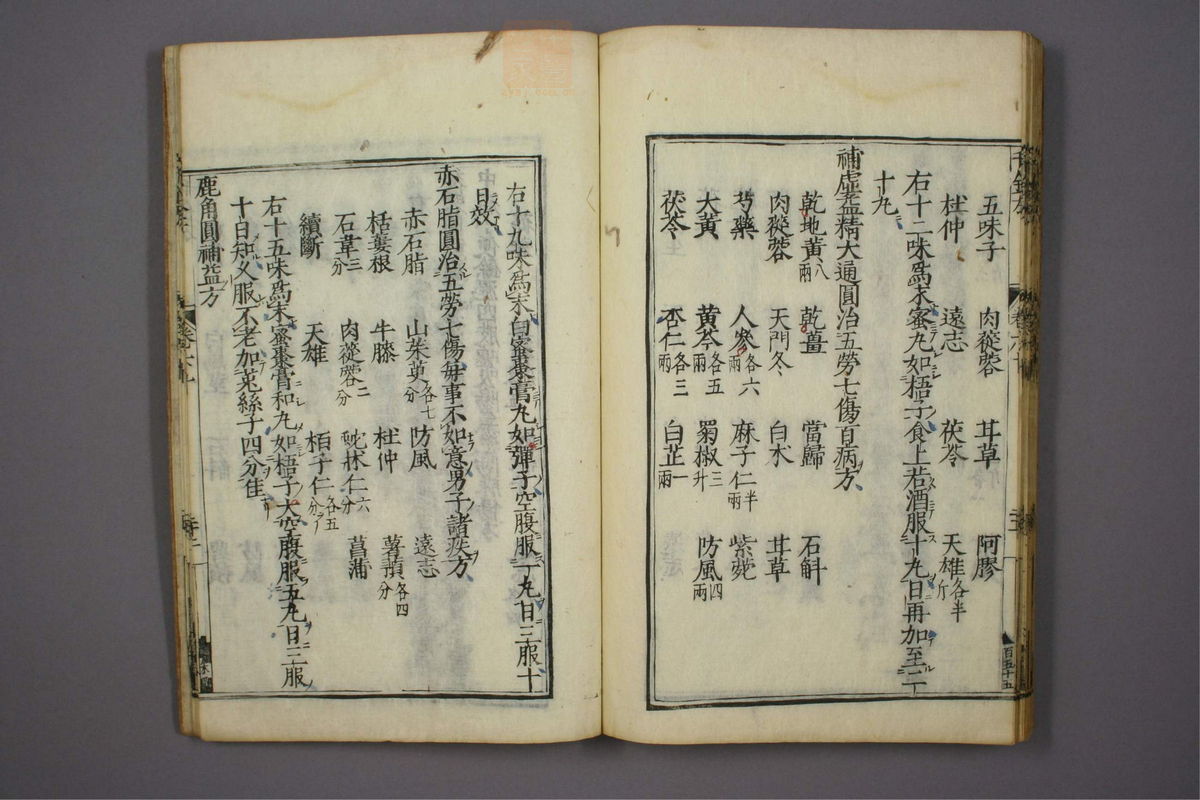 五味子 肉蓯蓉 甘草 阿膠
杜仲 遠志 茯苓 天雄各半斤
右十二味爲末蜜丸如梧子食上若酒服十丸日再加至二
十丸
補虛益精大通圓治五勞七傷百病方
乾地黃八兩 乾薑 當歸 石斛
肉蓯蓉 天門冬 白朮 甘草
芍藥 人參各六兩 麻子仁半兩 紫菀
大黃 黃芩各五兩 蜀椒三升 防風四兩
茯苓 杏仁各三兩 白芷一兩
百五十五
右十九味爲末白蜜棗膏丸如彈子空腹服一丸日三服十
日效
赤石脂圓治五勞七傷每事不如意男子諸疾方
赤石脂 山茱萸各七分 防風 遠志
栝蔞根 牛膝 杜仲 薯蕷各四分
石韋三分 肉蓯蓉二分 蛇牀仁六分 菖蒲
續斷 天雄 栢子仁各五分
右十五味爲末蜜棗膏和丸如梧子大空腹服五丸日三服
十日知久服不老加菟絲子四分佳
鹿角圓補益方